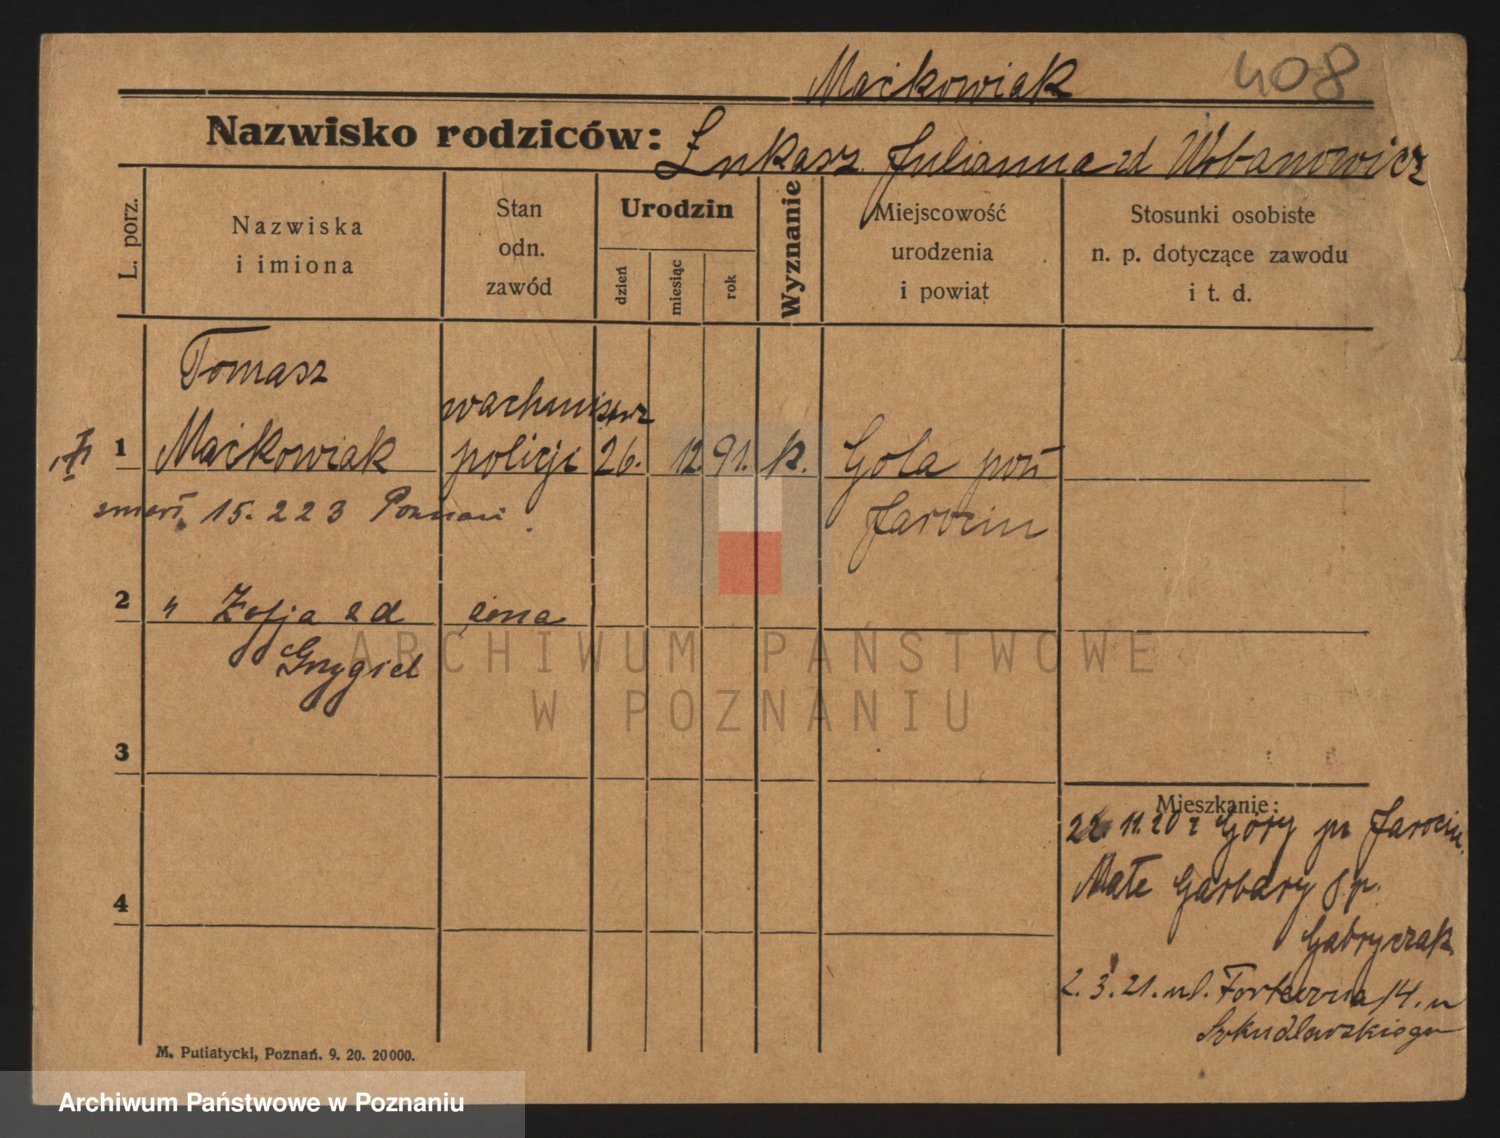 408
Maćkowiak
Nazwisko rodziców: Łukasz Julianna zd Urbanowicz
L. porz.
Nazwiska
i imiona
Stan
odn.
zawód
Urodzin
dzień
miesiąc
rok
Wyznanie
Miejscowość
urodzenia
i powiat
Stosunki osobiste
n. p. dotyczące zawodu
i t. d.
Tomasz
wachmistrz
1 Maćkowiak policji 26. 12. 91. k. Gola pow
Jarocin
zmarł 15. 2 23 Poznań
2 " Zofja zd żona
Grzygiel
3
4
Mieszkanie:
22. 11. 20 z Góry pw Jarocin.
Małe Garbary 8 p.
Gabryczak
2. 3. 21. ul. Forteczna 14. u
Szkudlarskiego
M. Putiatycki, Poznań. 9. 20. 20000.
ARCHIWUM PAŃSTWOWE
W POZNANIU
Archiwum Państwowe w Poznaniu